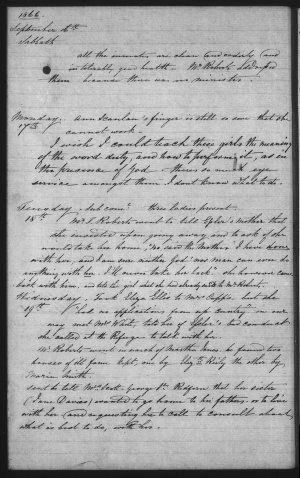 1866.
September 16th
Sabbath
all the inmates are clean and orderly (and
in tolerably good health. Mr Roberts
them because there was no minister.
Monday. Ann Scanlan's finger is still so sore that she
17th cannot work.
I wish I could teach these girls the meaning
of the word duty, and how to perform it, as in
the presence of God - theres so much eye
service amongst them I dont know what to do.
Tuesday - Sub comee three ladies present.
18th Mr. Roberts went to tell mother that
she insisted upon going away and to ask if she
would take her home, "No said the Mother, I have done
with her, and I am sure neither God nor man can now do
anything with her. I'll never take her back" she however came
back with him, and told the girl what she had already said to Mr Roberts.
Wednesday. Took Eliza Ellis to Mrs but she
19th had no applications from up country in our
way met Mr White, told her of bad conduct
she called at the Refuge to talk with her.
Mr Roberts went in search of Martha Jones, he found two
houses of ill fame kept, one by Eliza the other by
Maria Smith.
sent to tell Mrs Scott. George St. Redfern that her sister
(Jane Davies) wanted to go home to her father, or to live
with her (and requesting her to call to consult about
what is best to do, with her.